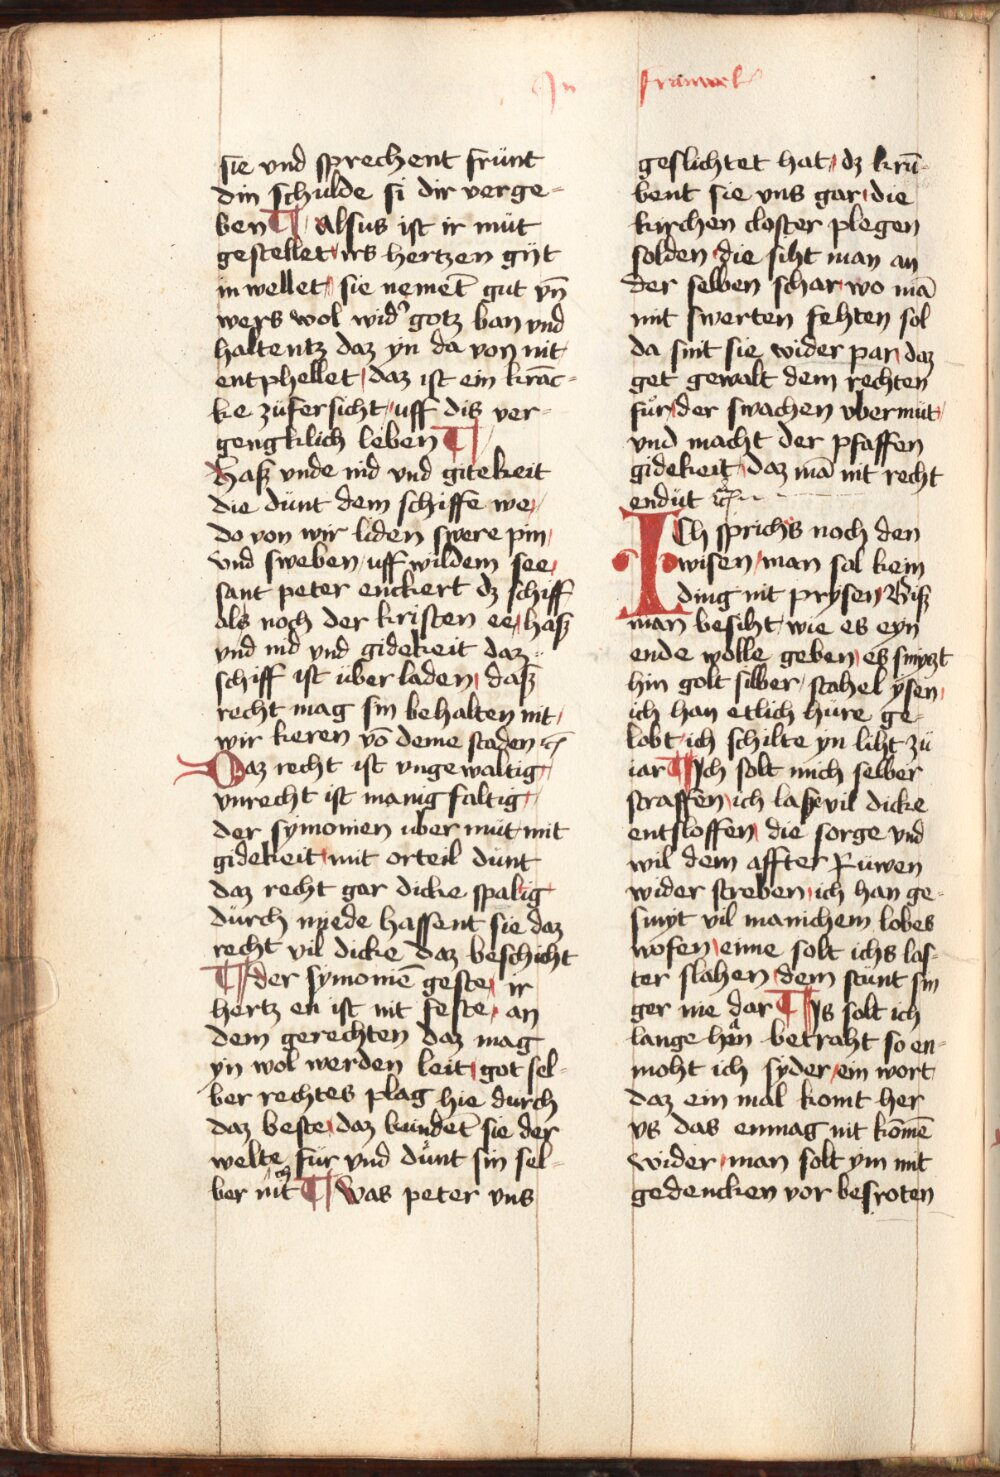 In frauwel
sie vnd sprechent frünt
din schulde si dir verge-
ben ¶ Alsus ist ir müt
gestellet irs hertzen gyt
in wellet sie nemēt gut vn̄
wers wol wid' gotz ban vnd
haltentz daz yn da von nit
entphellet daz ist ein krāc-
ke züfersicht uff dis ver-
gengklich leben ¶
Haß vnde nid vnd gitekeit
die dünt dem schiffe we
do von wir liden swere pin
vnd sweben uff wildem see
sant peter enckert dz schiff
als noch der kristen ee haß
vnd nid vnd gidekeit daz
schiff ist über laden daß
recht mag sin behalten nit
wir keren vō deme staden ⁊c
Daz recht ist vngewaltig
vnrecht ist manig faltig
der symonien uber müt mit
gidekeit mit orteil dünt
daz recht gar dicke spaltig
dürch myede hassent sie daz
recht vil dicke daz beschicht
¶ der symoniē geste ir
hertz en ist nit feste an
dem gerechten daz mag
yn wol werden leit got sel-
ber rechtes plag hie durch
daz beste daz kündet sie der
welte für vnd dünt sin sel-
ber nit ¶ Was peter vns
geslichtet hat dz krū-
bent sie vns gar die
kirchen closter plegen
solden die siht man an
der selben schar wo mā
mit swerten fehten sol
da sint sie wider par daz
get gewalt dem rechten
für der swachen vbermüt
vnd macht der pfaffen
gidekeit daz mā nit recht
endüt ⁊c
ICh sprichs noch den
wisen man sol kein
ding nit prysen Biß
man besiht wie es eyn
ende wolle geben es smyzt
hin golt silber stahel ysen
ich han etlich hüre ge-
lobt ich schilte yn liht zü
iar ¶ Ich solt mich selber
straffen ich laße vil dicke
entsloffen die sorge vnd
wil dem affter Rüwen
wider streben ich han ge-
smyt vil manichem lobes
wofen eime solt ichs las-
ter slahen dem stünt sin
ger nie dar ¶ Is solt ich
lange han betraht so en-
moht ich syder ein wort
daz ein mal komt her
vs das enmag nit kōmē
wider man solt ym mit
gedencken vor besroten